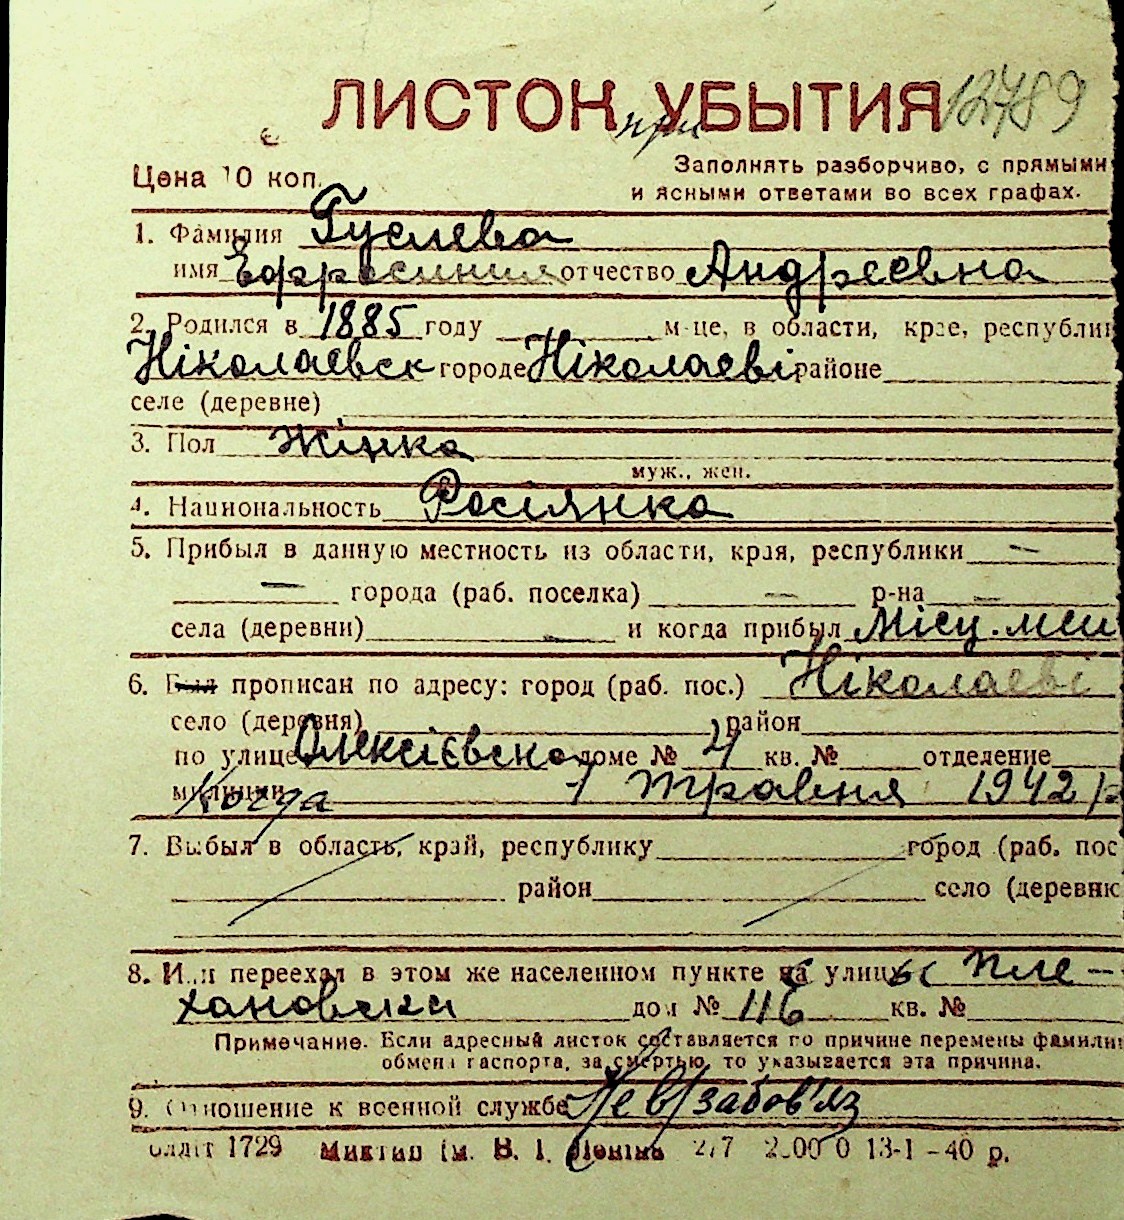 ЛИСТОК при УБЫТИЯ 12789
Цена 10 коп.
Заполнять разборчиво, с прямыми
и ясными ответами во всех графах.
1. Фамилия Гуслева
имя Ефросиния отчество Андреевна
2. Родился в 1885 году м-це, в области, крае, республи
Ніколаевск городе Ніколаеві районе
селе (деревне)
3. Пол жінка
муж., жен.
4. Национальность Росіянка
5. Прибыл в данную местность из области, края, республики —
— города (раб. поселка) — р-на —
села (деревни) — и когда прибыл Місц. меш
6. Был прописан по адресу: город (раб. пос.) Ніколаеві
село (деревня) район
по улице Олексієвско доме № 4 кв. № отделение
милиции Когда 1 травня 1942 р
7. Выбыл в область, край, республику город (раб. пос
район село (деревню
8. Или переехал в этом же населенном пункте на улицы Пле-
хановски дом № 116 кв. №
Примечание. Если адресный листок составляется по причине перемены фамилии
обмена паспорта, за смертью, то указывается эта причина.
9. Отношение к военной службе Не в/забов'яз
1729 ім. В. І. Леніна 13-1-40 р.